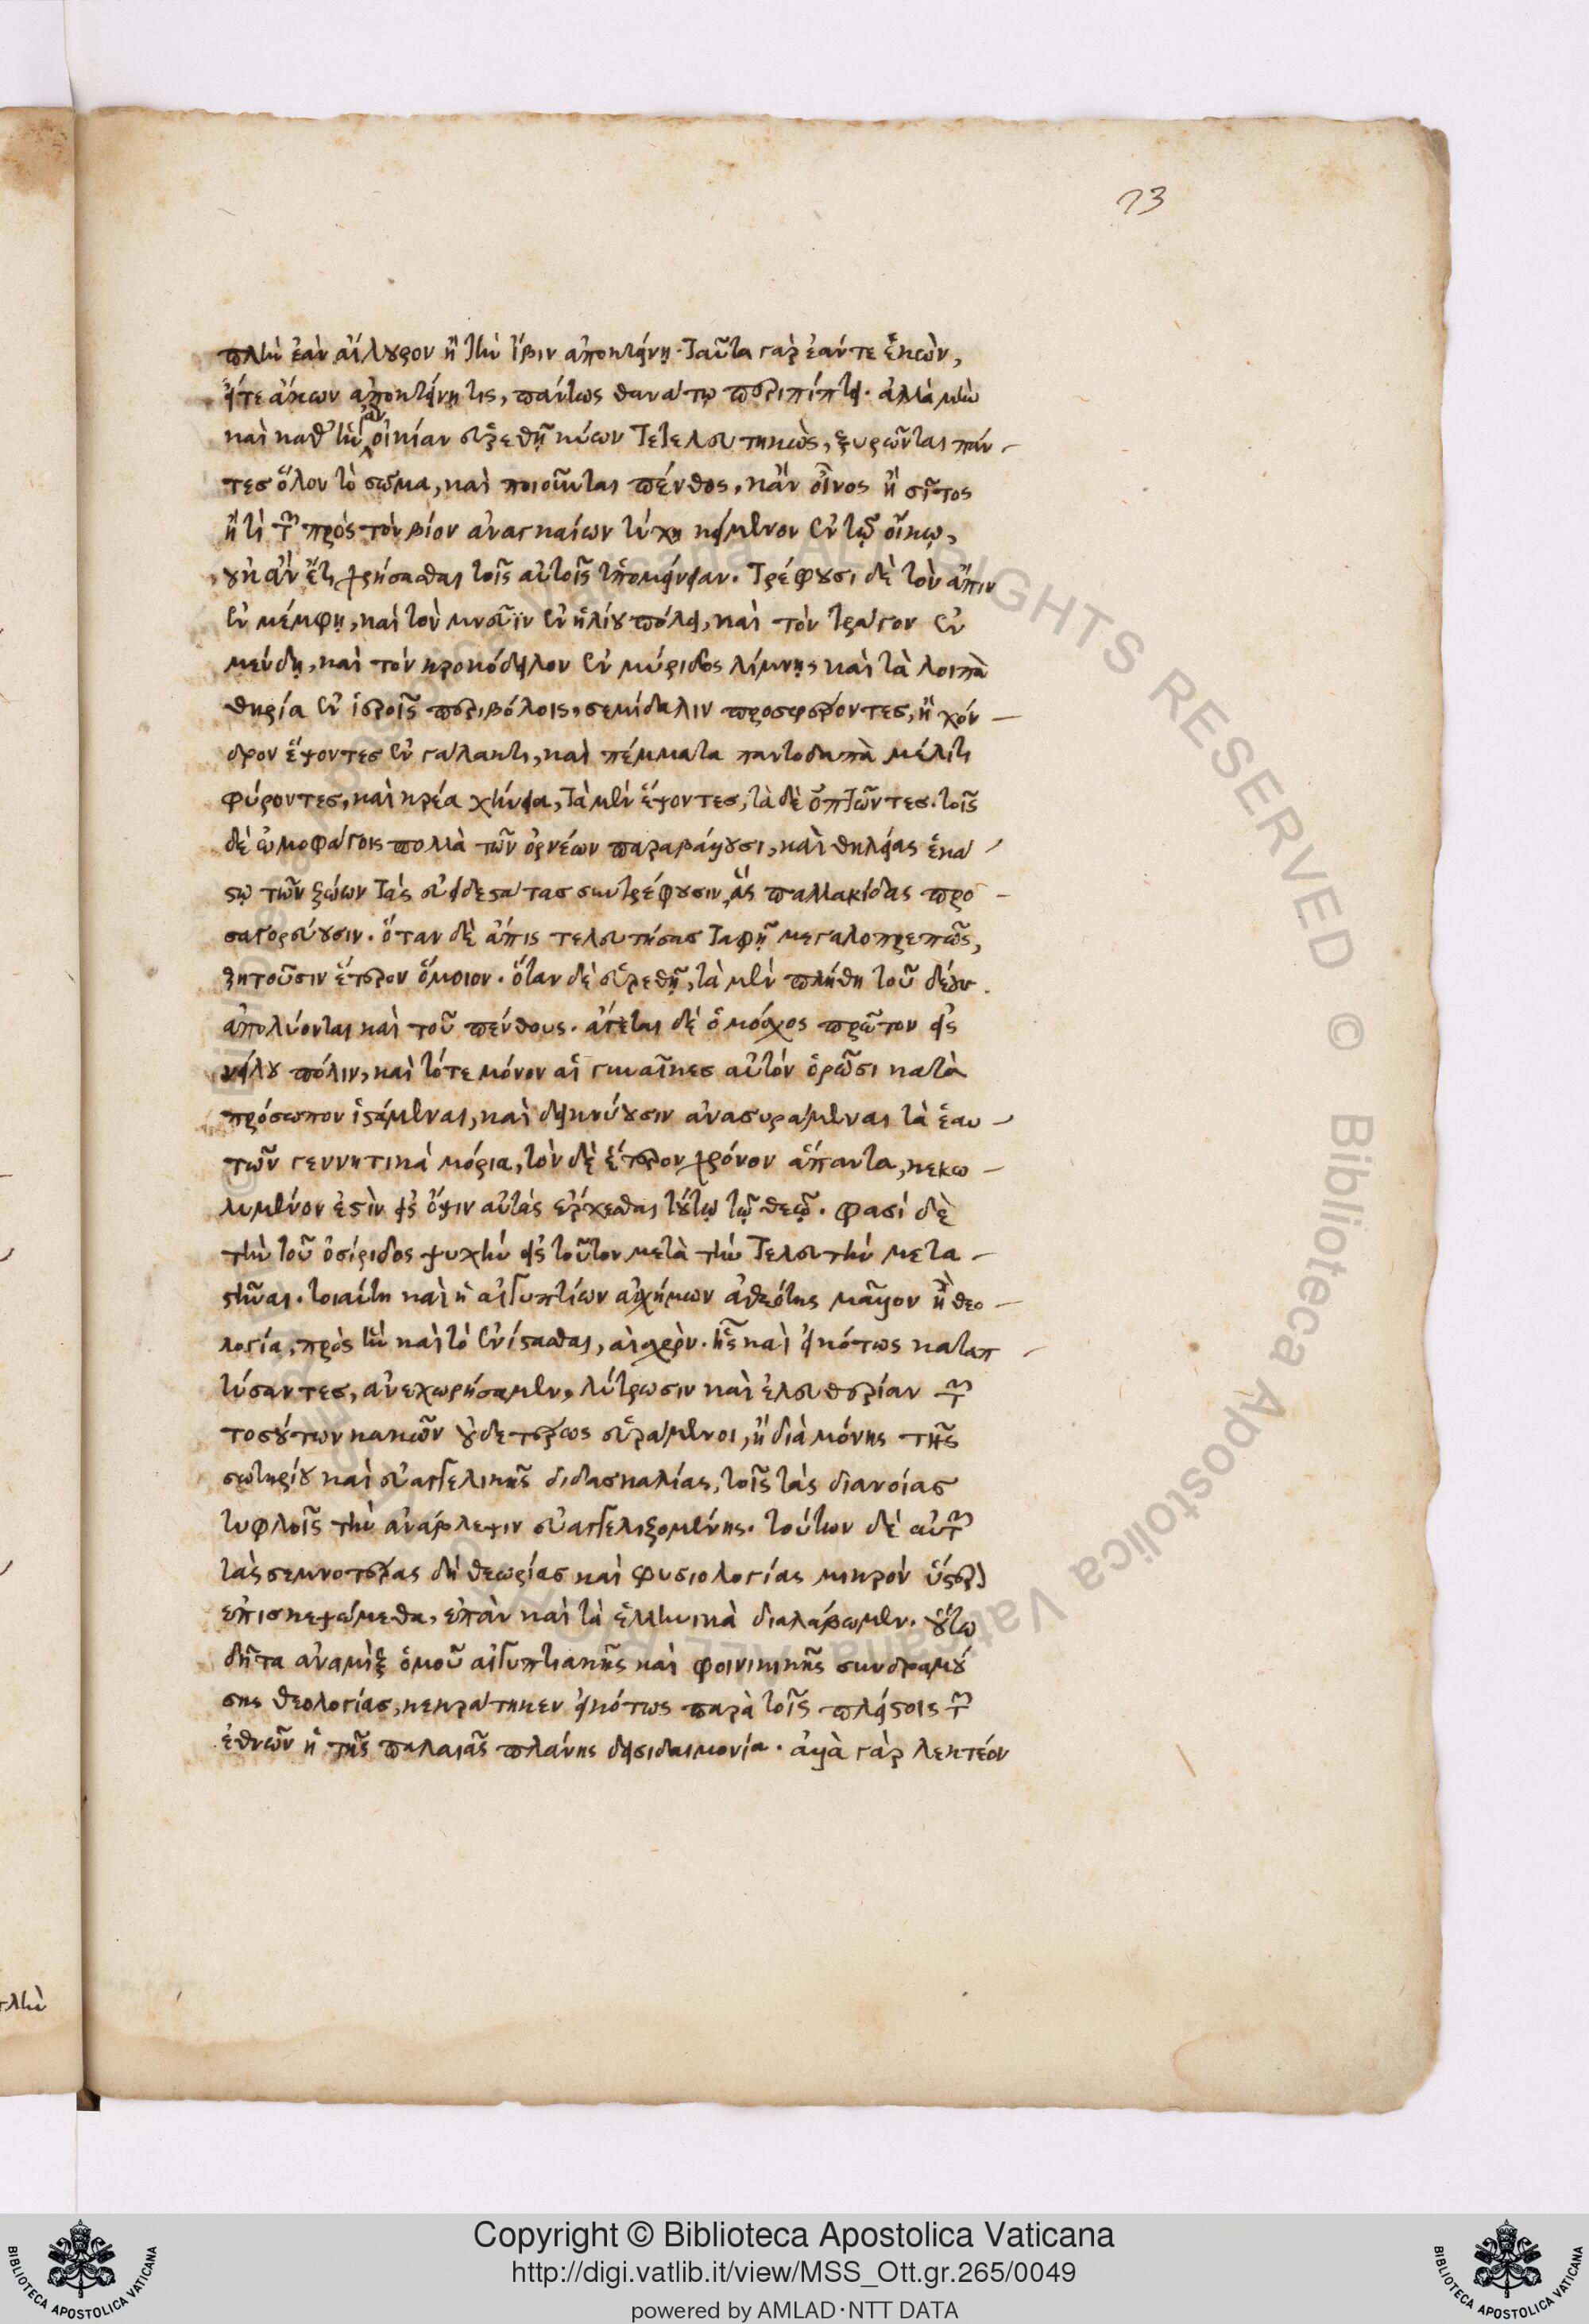 23
πλὴν ἐὰν αἴλουρον ἢ τὴν ἴβιν ἀποκτείνῃ. ταῦτα γὰρ ἐάν τε ἑκὼν,
εἴτε ἄκων ἀποκτείνῃ τις, πάντως θανάτῳ περιπίπτει. ἀλλὰ μὴν
καὶ καθ' ἣν ἂν οἰκίαν εὑρεθῇ κύων τετελευτηκὼς, ξυρῶνται πάν–
τες ὅλον τὸ σῶμα, καὶ ποιοῦνται πένθος, κἂν οἶνος ἢ σῖτος
ἤ τι τῶν πρὸς τὸν βίον ἀναγκαίων τύχῃ κείμενον ἐν τῷ οἴκῳ,
οὐκ ἂν ἔτι χρήσασθαι τοῖς αὐτοῖς ὑπομείνειαν. τρέφουσι δὲ τὸν ἄπιν
ἐν μέμφῃ, καὶ τὸν μνεῦϊν ἐν ἡλίου πόλει, καὶ τὸν τράγον ἐν
μένδῃ, καὶ τὸν κροκόδειλον ἐν μύριδος λίμνῃς καὶ τὰ λοιπὰ
θηρία ἐν ἱεροῖς περιβόλοις, σεμίδαλιν προσφέροντες, ἢ χόν–
δρον ἕψοντες ἐν γάλακτι, καὶ πέμματα παντοδαπὰ μέλιτι
φύροντες, καὶ κρέα χήνεια, τὰ μὲν ἕψοντες, τὰ δὲ ὀπτῶντες. τοῖς
δὲ ὠμοφάγοις πολλὰ τῶν ὀρνέων παραβάλλουσι, καὶ θηλείας ἑκά
στῳ τῶν ζώων τὰς εὐειδεστάτας συντρέφουσιν, ἃς παλλακίδας προ–
σαγορεύουσιν. ὅταν δὲ ἄπις τελευτήσας ταφῇ μεγαλοπρεπῶς,
ζητοῦσιν ἕτερον ὅμοιον. ὅταν δὲ εὑρεθῇ, τὰ μὲν πλήθη τοῦ δέου
ἀπολύονται καὶ τοῦ πένθους. ἄγεται δὲ ὁ μόσχος πρῶτον εἰς
νείλου πόλιν, καὶ τότε μόνον αἱ γυναῖκες αὐτὸν ὁρῶσι κατὰ
πρόσωπον ἱστάμεναι, καὶ δεικνύουσιν ἀνασυράμεναι τὰ ἑαυ–
τῶν γεννητικὰ μόρια, τὸν δὲ ἕτερον χρόνον ἅπαντα, κεκω–
λυμένον ἐστὶν εἰς ὄψιν αὐτὰς ἔρχεσθαι τούτῳ τῷ θεῷ. φασὶ δὲ
τὴν τοῦ ὀσίριδος ψυχὴν εἰς τοῦτον μετὰ τὴν τελευτὴν μετα–
στῆναι. τοιαύτη καὶ ἡ αἰγυπτίων ἀσχήμων ἀθεότης μᾶλλον ἢ θεο–
λογία, πρὸς ἣν καὶ τὸ ἐνίστασθαι, αἰσχρὸν. ἧς καὶ εἰκότως καταπ–
τύσαντες, ἀνεχωρήσαμεν, λύτρωσιν καὶ ἐλευθερίαν τῶν
τοσούτων κακῶν οὐδετέρως εὑράμενοι, ἢ διὰ μόνης τῆς
σωτηρίου καὶ εὐαγγελικῆς διδασκαλίας, τοῖς τὰς διανοίας
τυφλοῖς τὴν ἀνάβλεψιν εὐαγγελιζομένης. τούτων δὲ αὐτῶν
τὰς σεμνοτέρας δὴ θεωρίας καὶ φυσιολογίας μικρὸν ὕστερον
ἐπισκεψώμεθα, ἐπὰν καὶ τὰ ἑλληνικὰ διαλάβωμεν. οὕτω
δῆτα ἀναμὶξ ὁμοῦ αἰγυπτιακῆς καὶ φοινικικῆς συνδραμού
σης θεολογίας, κεκράτηκεν εἰκότως παρὰ τοῖς πλείστοις τῶν
ἐθνῶν ἡ τῆς παλαιᾶς πλάνης δεισιδαιμονία. ἀλλὰ γὰρ λεκτέον
Copyright © Biblioteca Apostolica Vaticana
http://digi.vatlib.it/view/MSS_Ott.gr.265/0049
powered by AMLAD·NTT DATA